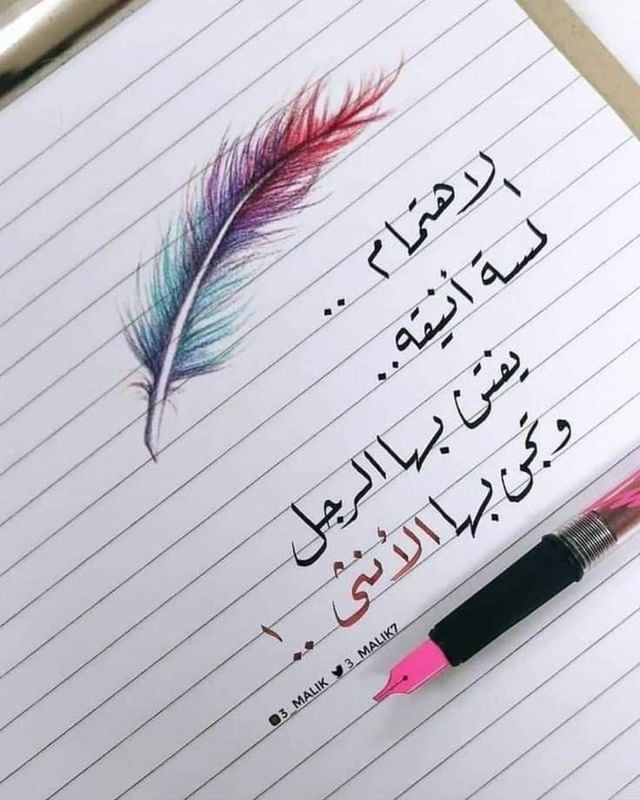 الاهتمام ..
لمسة أنيقه ..
يفتن بها الرجل
وتجن بها الأنثى .. ١
3_MALIK 3_MALIK7